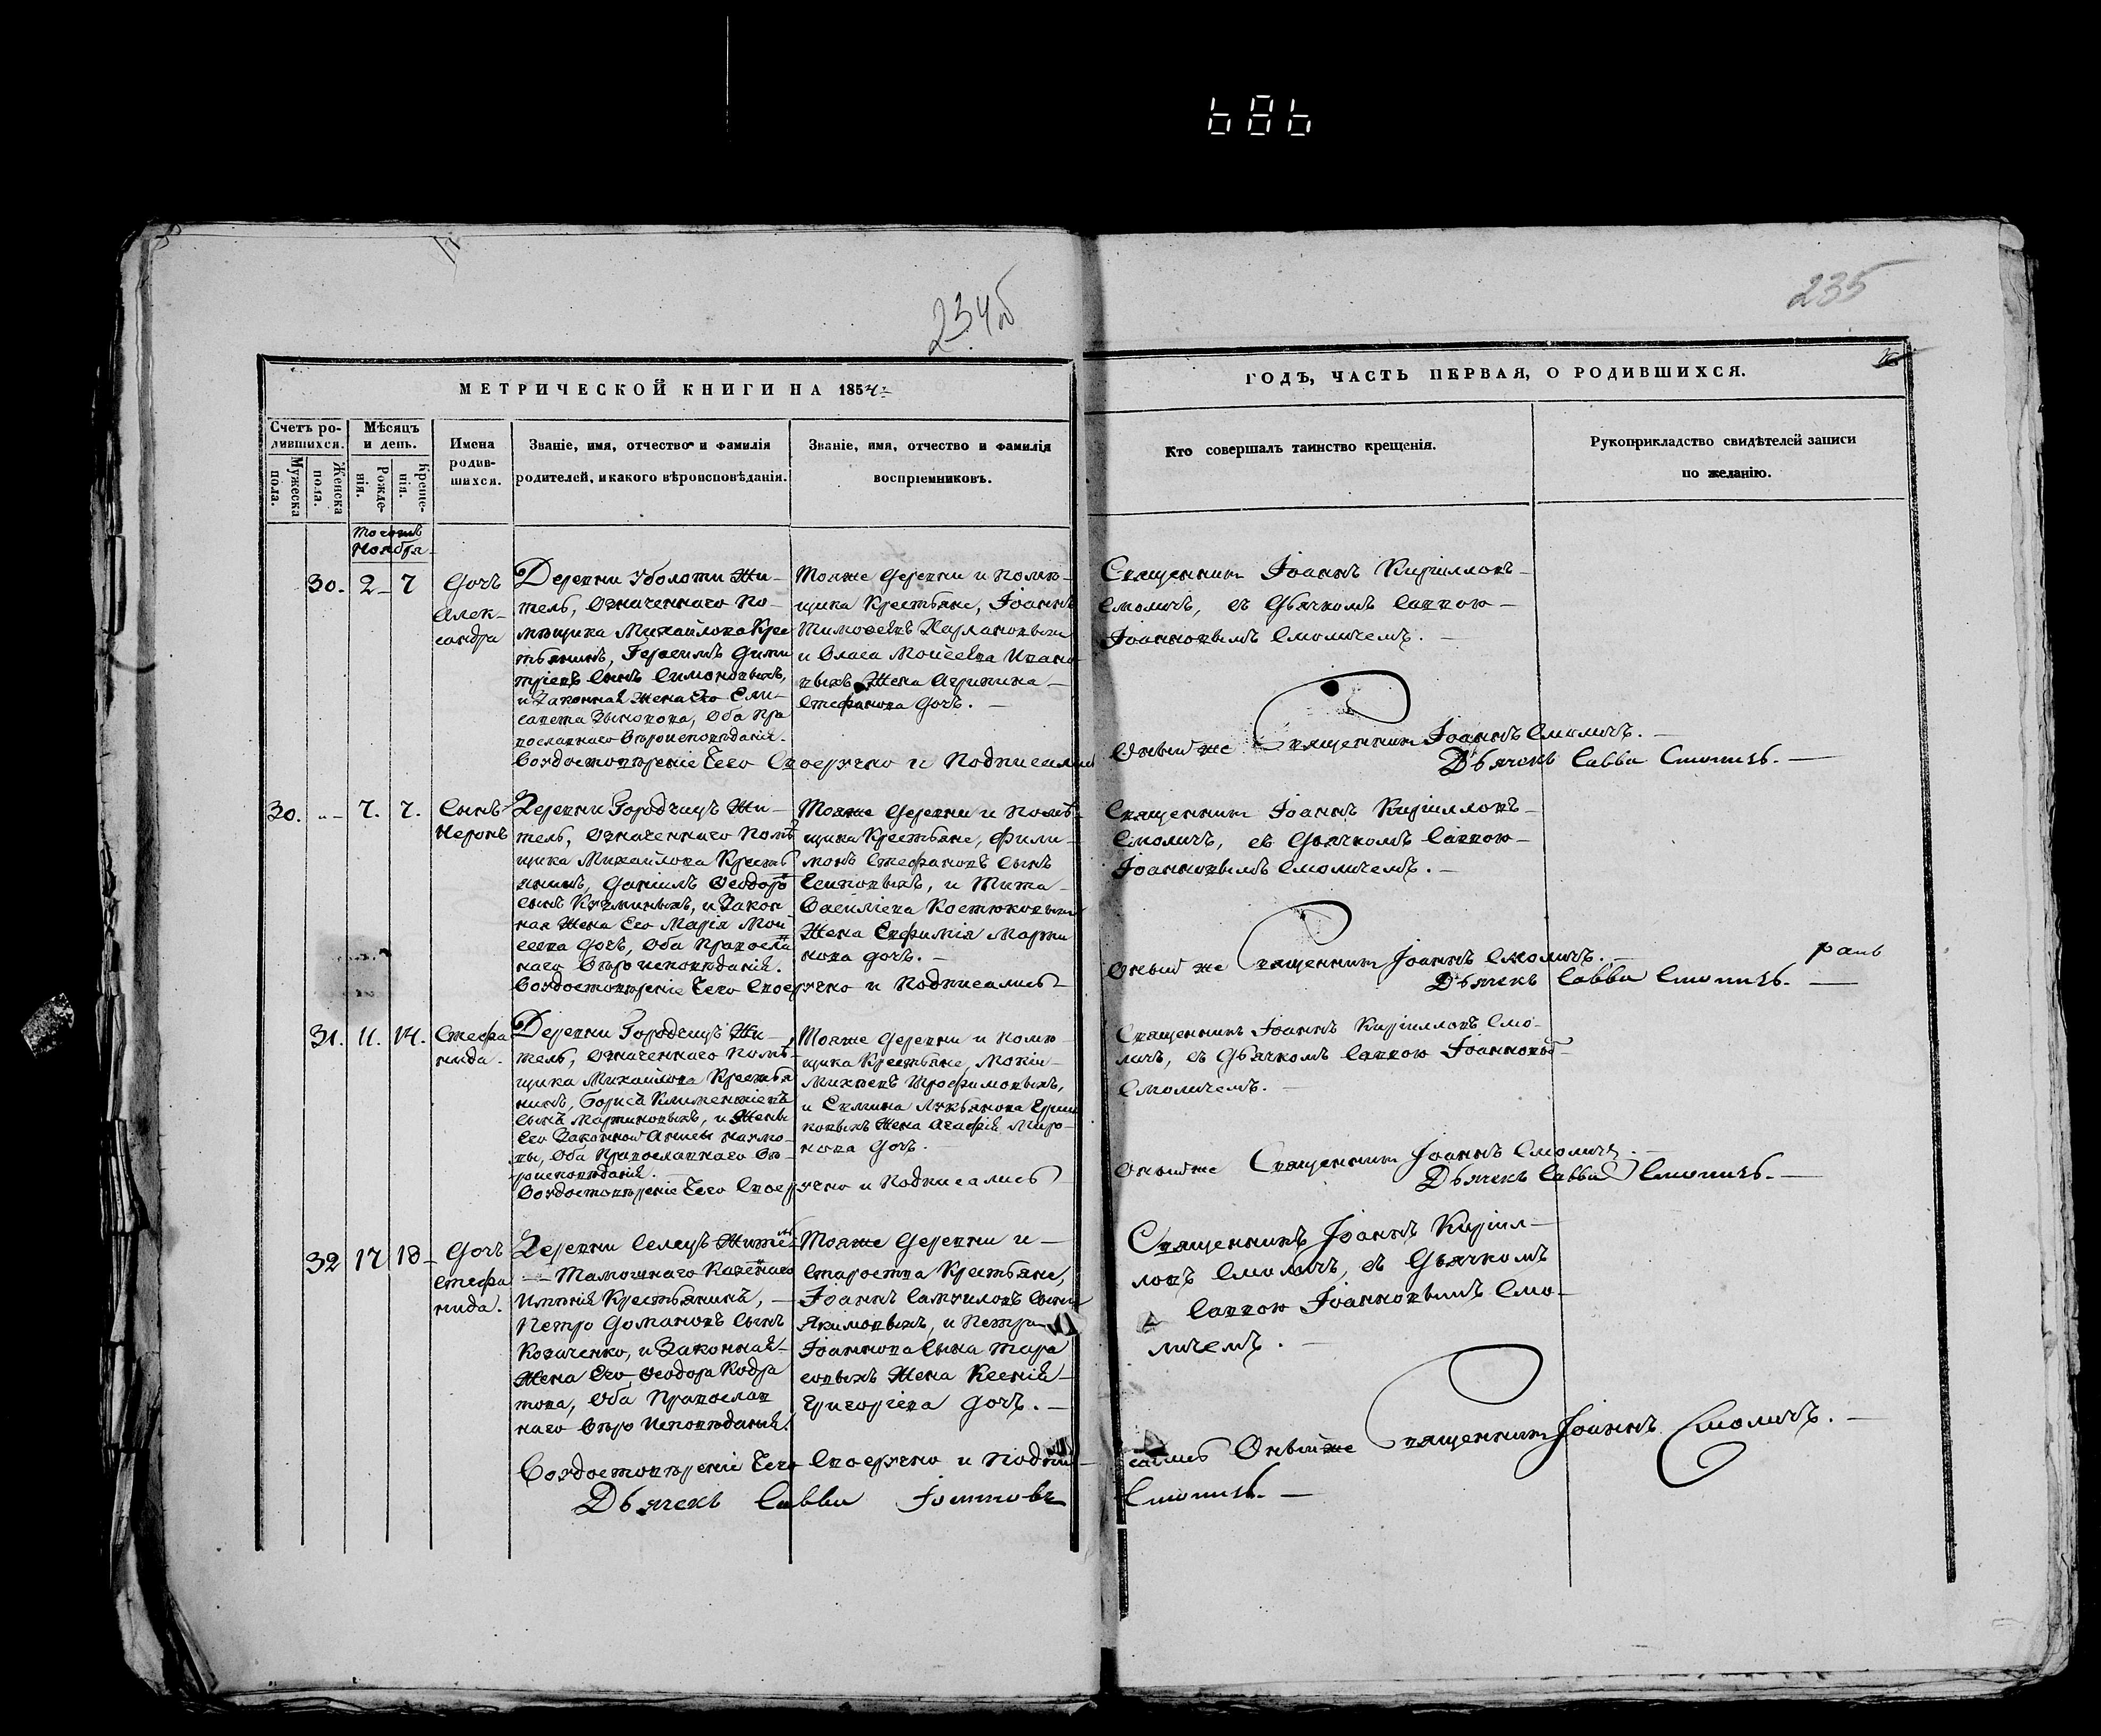 686
234об
235
МЕТРИЧЕСКОЙ КНИГИ НА 1854
ГОДЪ, ЧАСТЬ ПЕРВАЯ, О РОДИВШИХСЯ.
Счетъ ро-
дившихся.
Мужеска
пола.
Женска
пола.
Мѣсяцъ
и день.
Рожде-
нія.
Креще-
нія.
Имена
родив-
шихся.
Званіе, имя, отчество и фамилія
родителей, и какого вѣроисповѣданія.
Званіе, имя, отчество и фамилія
воспріемниковъ.
Кто совершалъ таинство крещенія.
Рукоприкладство свидѣтелей записи
по желанію.
Ноября
30. 2 7
Дочь
Алек-
сандра
Деревни Уболоти Жи-
тель, Означеннаго По-
мѣщика Михайлова Крес
тьянинъ, Герасимъ Дими
тріевъ Сынъ Симоновыхъ,
и Законная Жена Его Ели-
савета Зыновова, Оба Пра
вославнаго Вѣроисповѣданія.
Тояже Деревни и Помѣ-
щика Крестьяне, Іоаннъ
Тимоѳеевъ Харлановыхъ
и Власа Моисеева Ивано
выхъ Жена Агрипина
Стефанова Дочь.
Священникъ Іоаннъ Кирилловъ
Смоличъ, съ Дьячкомъ Саввою
Іоанновымъ Смоличемъ.
Воудостовѣреніе Чего Своеручно и Подписались
Оныйже Священникъ Іоаннъ Смоличъ.
Дьячекъ Савва Смоличъ.
30. 7. 7.
Сынъ
Неронъ
Деревни Городчицъ Жи-
тель, Означеннаго Помѣ
щика Михайлова Кресть
янинъ, Даніилъ Ѳеодоро
Сынъ Кузминыхъ, и Закон
ная Жена Его Марія Мои
сеева Дочь, Оба Правосла
наго Вѣроисповѣданія.
Тояже Деревни и Помѣ-
щика Крестьяне, Фили-
монъ Стефановъ Сынъ
Есиповыхъ, и Тита
Василіева Костюковыхъ
Жена Евфимія Марти
нова Дочь.
Священникъ Іоаннъ Кирилловъ
Смоличъ, съ Дьячкомъ Саввою
Іоанновымъ Смоличемъ.
Воудостовѣреніе Чего Своеручно и Подписались
Оный же Священникъ Іоаннъ Смоличъ.
Дьячекъ Савва Смоличъ.
31. 11. 14.
Стефа
нида.
Деревни Городчицъ Жи-
тель, Означеннаго Помѣ-
щика Михайлова Крестья
нинъ, Борисъ Климентіевъ
Сынъ Мартиновыхъ, и Жены
Его Законной Анисы Наумо-
вы, Оба Православнаго Вѣ-
роисповѣданія.
Тояже Деревни и Помѣ-
щика Крестьяне, Мокій
Михѣевъ Трофимовыхъ,
и Лукьянова
Жена Агафія Миро-
нова Дочь.
Священникъ Іоаннъ Кирилловъ Смо-
личъ, съ Дьячкомъ Саввою Іоанновы
Смоличемъ.
Воудостовѣреніе Чего Своеручно и Подписались
Оныйже Священникъ Іоаннъ Смоличъ.
Дьячекъ Савва Смоличъ.
32 17 18
Дочь
Стефа
нида.
Деревни Селецъ Жите
Тамошнаго Казеннаго
Имѣнія Крестьянинъ,
Петро Домановъ Сынъ
Козаченко, и Законная
Жена Его Ѳеодора Кодра
това, Оба Православ
наго Вѣро Исповѣданія.
Тояже Деревни и
Староства Крестьяне,
Іоаннъ Самуиловъ Сынъ
Якимовыхъ, и Петра
Іоаннова Сына Тара
совыхъ Жена Ксенія
Григоріева Дочь.
Священникъ Іоаннъ Кирил-
ловъ Смоличъ, съ Дьячкомъ
Саввою Іоанновымъ Смо-
личемъ.
Воудостовѣреніе Чего Своеручно и Подпи-
сались Оныйже Священникъ Іоаннъ Смоличъ.
Дьячекъ Савва Іоанновъ
Смоличъ.